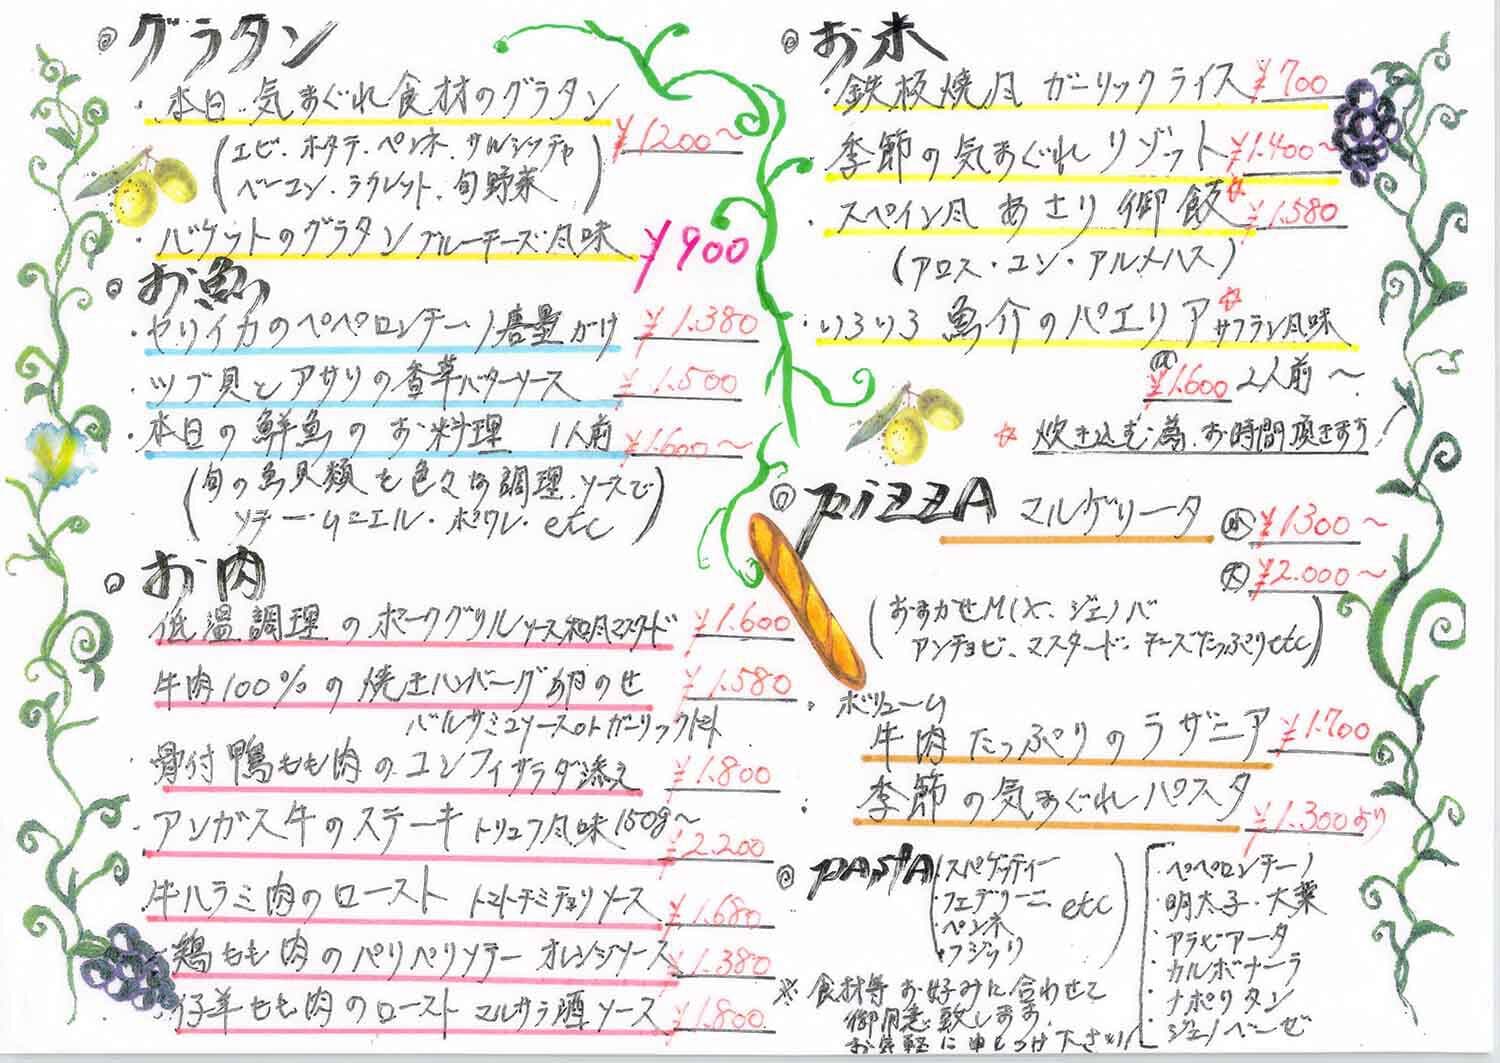 ◎グラタン
・本日 気まぐれ食材のグラタン
¥1200～
(エビ、ホタテ、ペンネ、サルシッチャ
ベーコン、ラクレット、旬野菜)
・バゲットのグラタン ブルーチーズ風味
¥900
◎お魚
・ヤリイカのペペロンチーノ 唐墨がけ ¥1.380
・ツブ貝とアサリの香草バターソース ¥1.500
・本日の鮮魚のお料理 1人前 ¥1.600～
(旬の魚貝類を色々な調理、ソースで
ソテー・ムニエル・ポワレ・etc)
◎お肉
低温調理のポークグリル ソース和風マスタード ¥1.600
牛肉100%の焼きハンバーグ卵のせ ¥1.580
バルサミコソースorガーリックトマト
骨付鴨もも肉のコンフィサラダ添え ¥1.800
アンガス牛のステーキ トリュフ風味150g～ ¥2.200
牛ハラミ肉のロースト トマトチミチュリソース ¥1.680
鶏もも肉のパリパリソテー オレンジソース ¥1.380
仔羊もも肉のロースト マルサラ酒ソース ¥1.800
◎お米
・鉄板焼風 ガーリックライス ¥700
季節の気まぐれリゾット ¥1.400～
・スペイン風 あさり御飯☆ ¥1.580
(アロス・コン・アルメハス)
・いろいろ魚介のパエリア☆ サフラン風味
¥1.600 2人前～
☆炊き込む為、お時間頂きます!
◎PiZZA マルゲリータ 小 ¥1300～
大 ¥2.000～
(おまかせMix、ジェノバ
アンチョビ、マスタード、チーズたっぷりetc)
・ボリューム
牛肉たっぷりのラザニア ¥1.700
・季節の気まぐれパスタ ¥1.300より
◎PASTA
(スパゲッティー
・フェデリーニ
・ペンネ
・フジッリ
etc)
・ペペロンチーノ
・明太子・大葉
・アラビアータ
・カルボナーラ
・ナポリタン
・ジェノベーゼ
※食材等 お好みに合わせて
御用意致します。
お気軽に申しつけ下さい